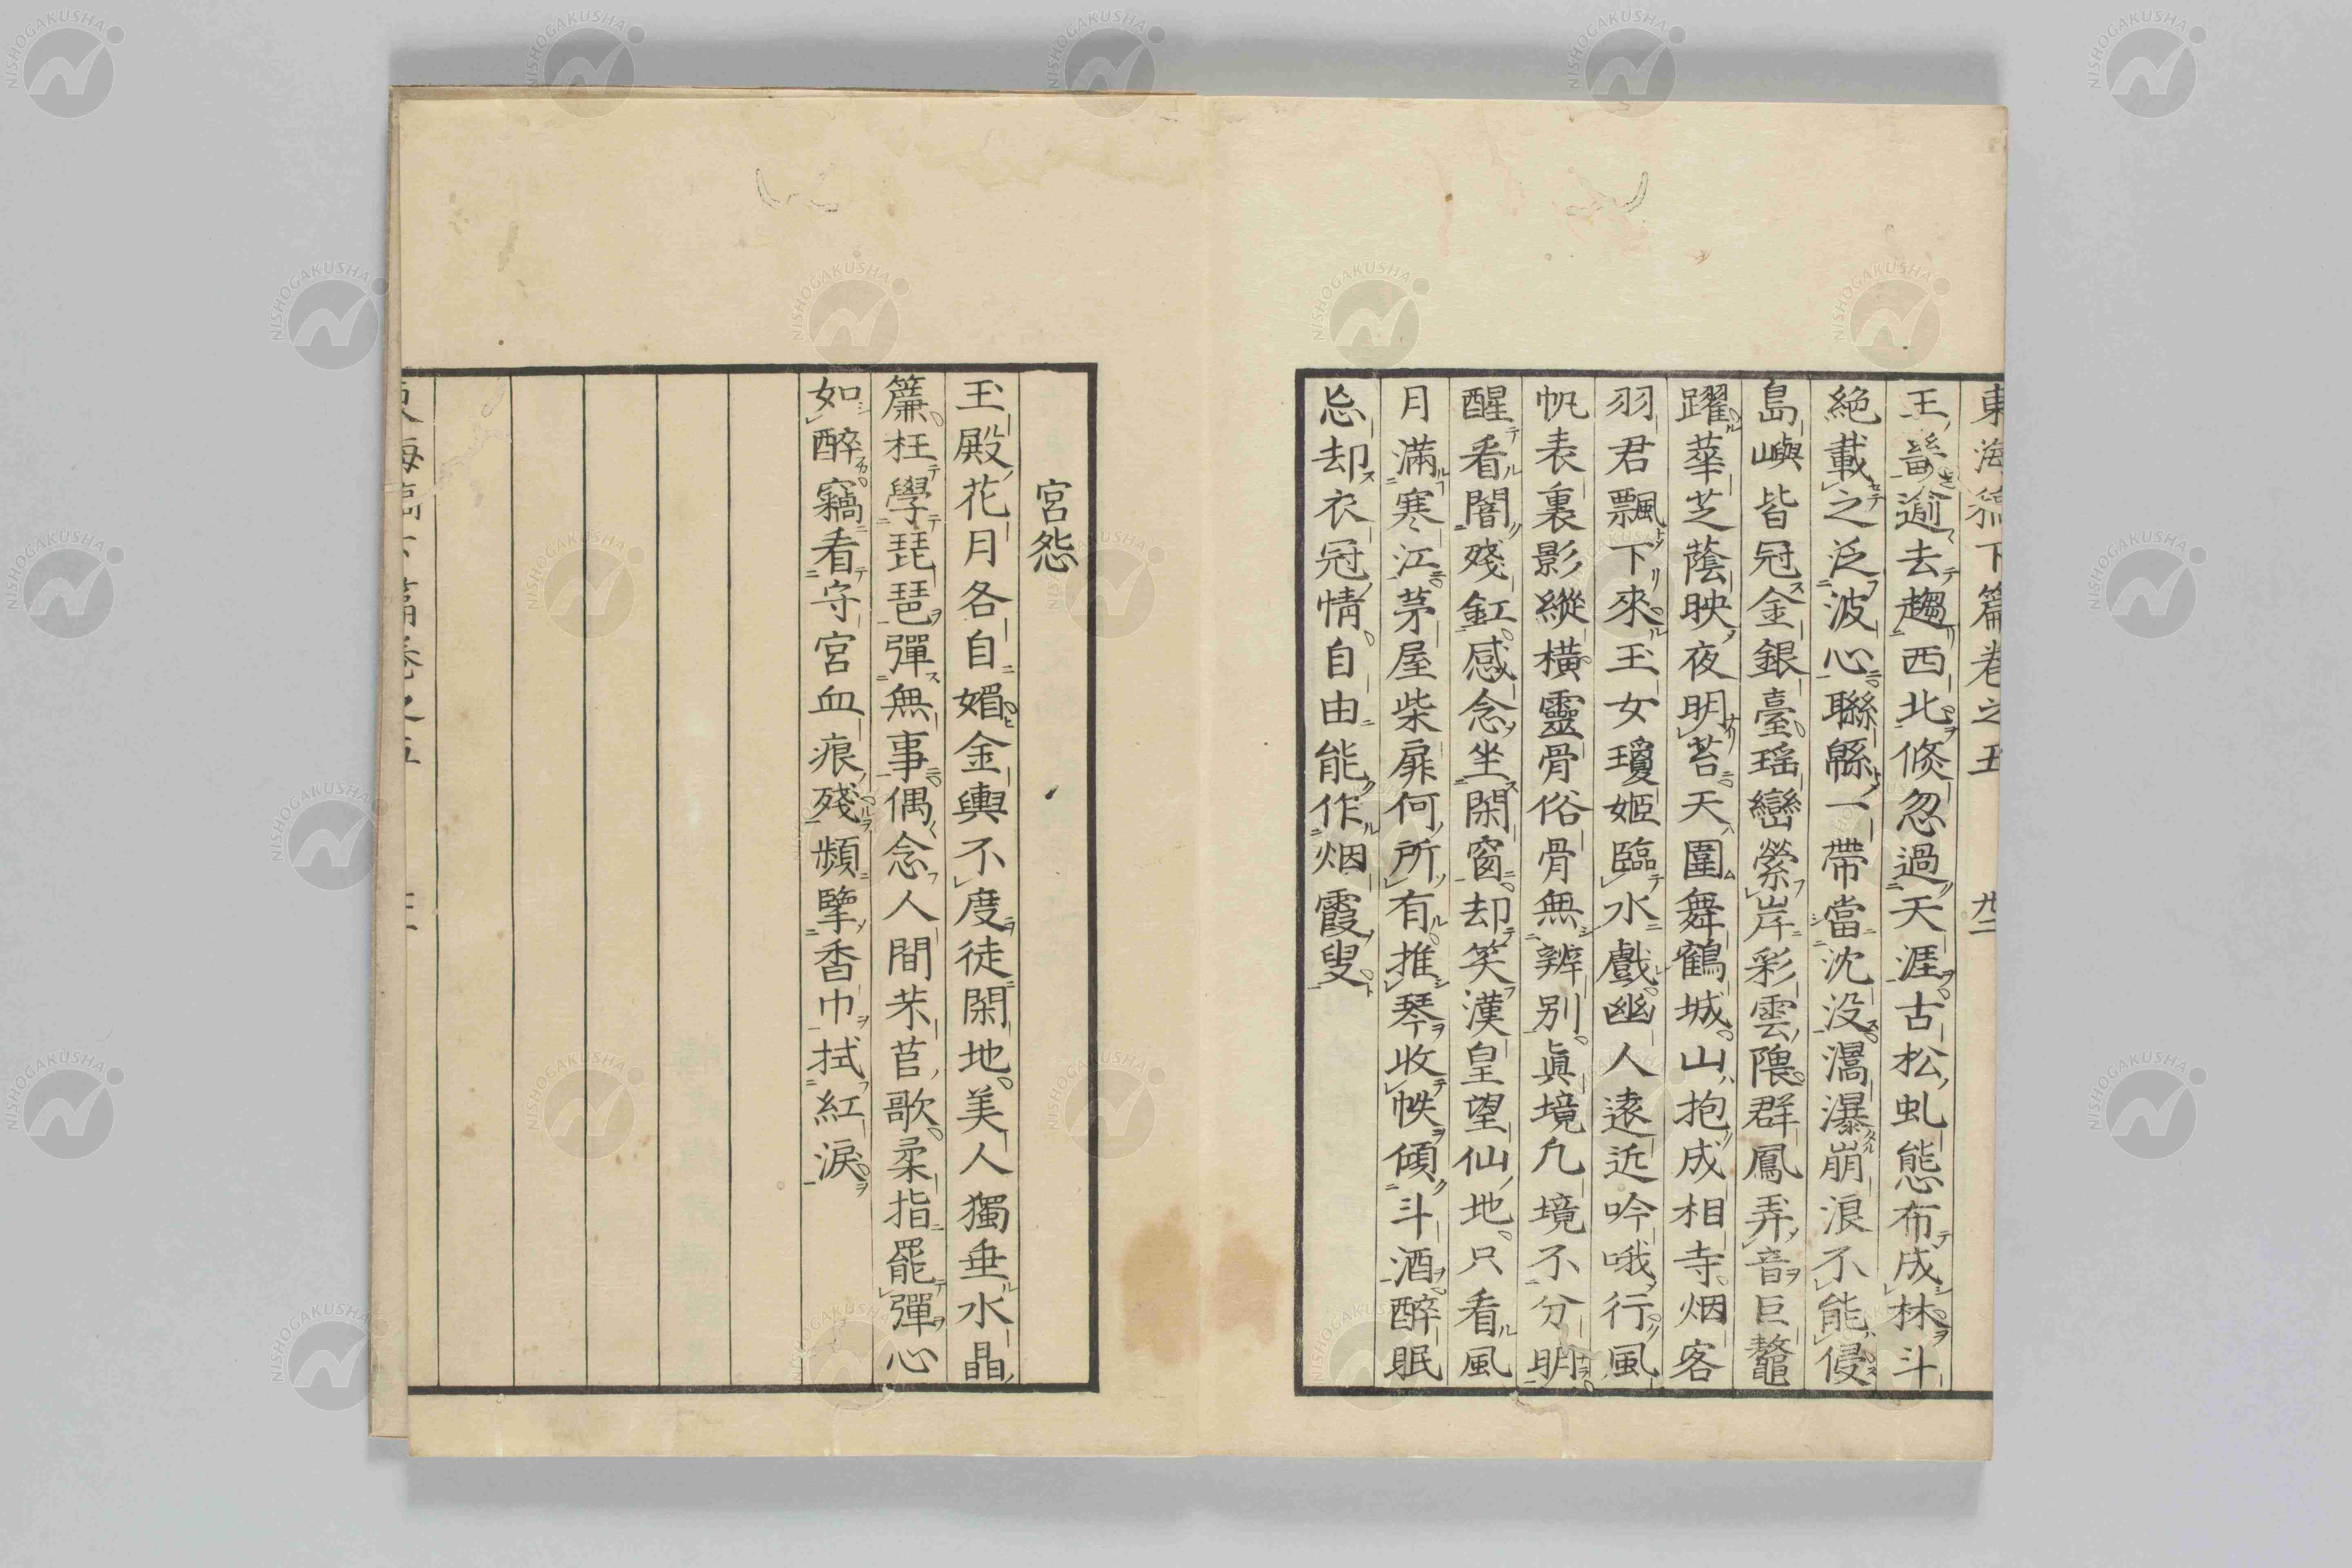 東海
下篇卷之五
王鬢逾去趨西北倐忽過天涯古松虬態布成林斗
絶載之泛波心聯緜一帶當沈没瀑崩浪不能侵
島嶼皆冠金銀臺瑶巒縈岸彩雲隈群鳳弄音巨鼇
躍華芝蔭映夜明苔天圍舞鶴城山抱成相寺烟客
羽君飄下來玉女瓊姬臨水戲幽人遠近吟哦行風
帆表裏影縱横靈骨俗骨無辨别眞境凡境不分明
醒看闇殘釭感念坐閑窗却笑漢皇望仙地只看風
月滿寒江茅屋柴扉何所有推琴收帙傾斗酒醉眠
忘却衣冠情自由能作烟霞叟
宮怨
玉殿花月各自媚金輿不度徒閑地美人獨垂水晶
簾枉學琵琶彈無事偶念人間芣苢歌柔指罷彈心
如醉竊看守宮血痕殘頻擥香巾拭紅淚
NISHOGAKUSHA